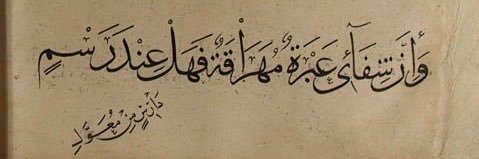 وَأَنَّ شِفَآئِي عَبْرَةٌ مُهَرَاقَةٌ فَهَلْ عِنْدَ رَسْمٍ
دَارِسٍ مِنْ مُعَوَّلِ